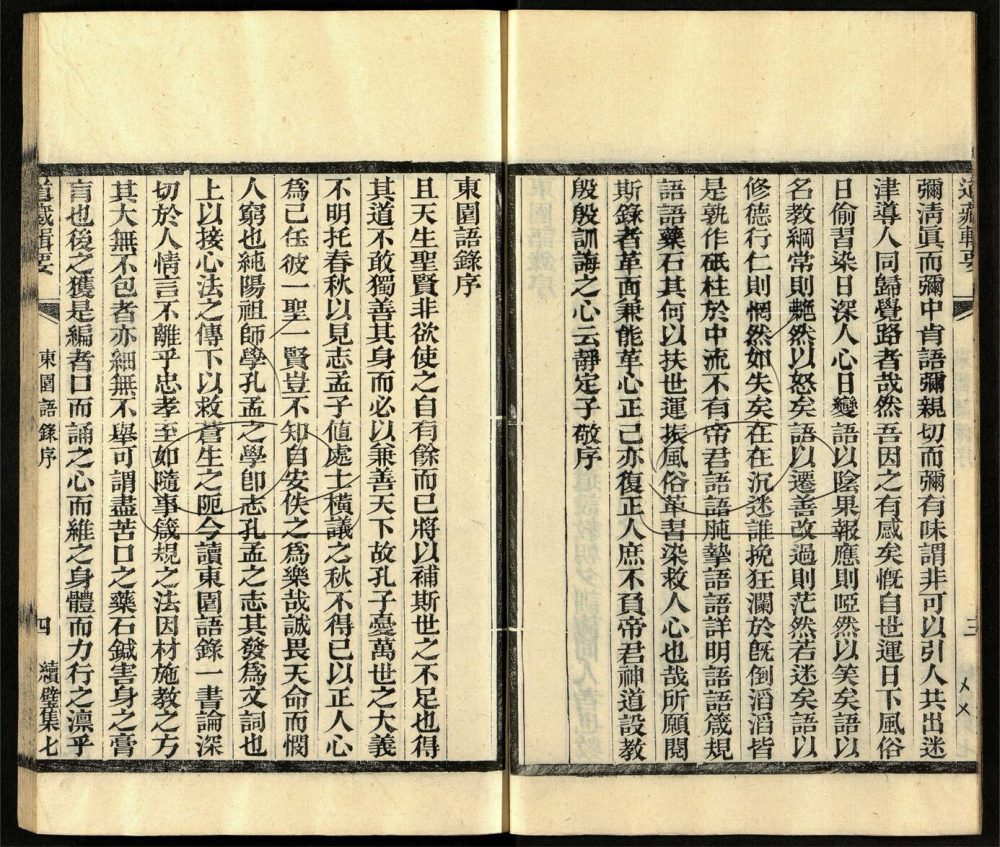 道藏輯要
三
彌淸眞而彌中肯語彌親切而彌有味謂非可以引人共出迷
津導人同歸覺路者哉然吾因之有感矣慨自世運日下風俗
日偷習染日深人心日變語以陰果報應則啞然以笑矣語以
名教綱常則艴然以怒矣語以遷善改過則茫然若迷矣語以
修德行仁則惘然如失矣在在沉迷誰挽狂瀾於旣倒滔滔皆
是孰作砥柱於中流不有帝君語語肫摯語語詳明語語箴規
語語藥石其何以扶世運振風俗革習染救人心也哉所願閱
斯錄者革面兼能革心正己亦復正人庶不負帝君神道設教
殷殷訓誨之心云靜定子敬序
東園語錄序
且天生聖賢非欲使之自有餘而已將以補斯世之不足也得
其道不敢獨善其身而必以兼善天下故孔子憂萬世之大義
不明托春秋以見志孟子值處士橫議之秋不得已以正人心
爲己任彼一聖一賢豈不知自安佚之爲樂哉誠畏天命而憫
人窮也純陽祖師學孔孟之學卽志孔孟之志其發爲文詞也
上以接心法之傳下以救蒼生之阨今讀東園語錄一書論深
切於人情言不離乎忠孝至如隨事箴規之法因材施教之方
其大無不包者亦細無不舉可謂盡苦口之藥石鍼害身之膏
肓也後之獲是編者口而誦之心而維之身體而力行之凛乎
道藏輯要
東園語錄序
四
續璧集七